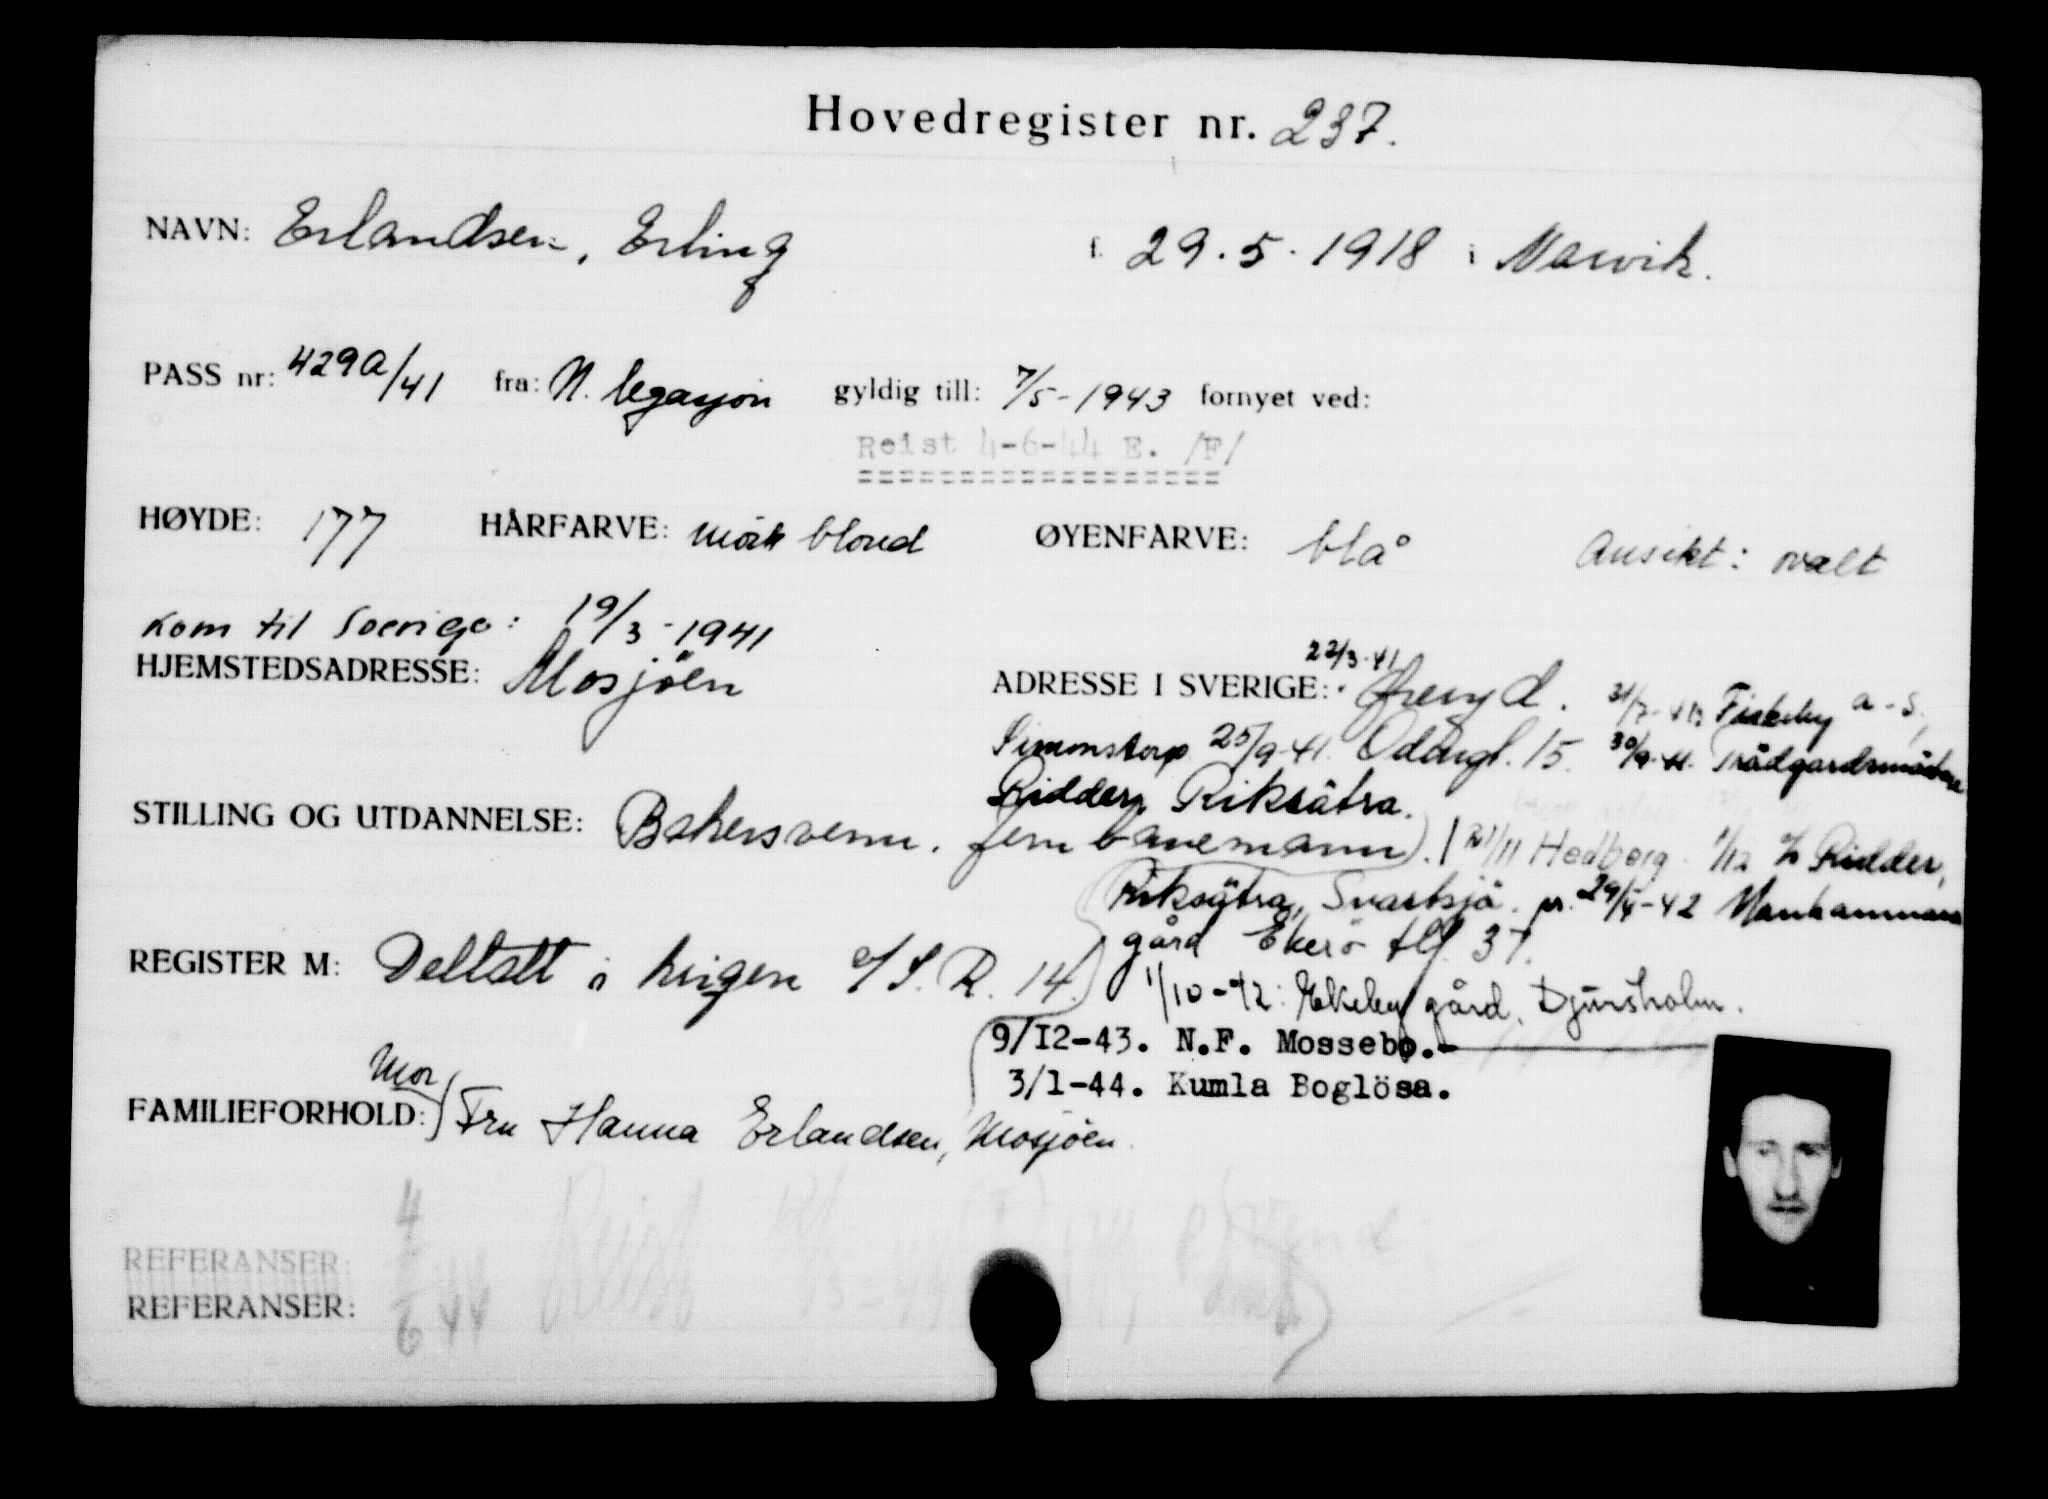 Hovedregister nr. 237.
NAVN: Erlandsen, Erling f. 29.5.1918 i Narvik.
PASS nr: 429a/41 fra: N. legasjon gyldig till: 7/5-1943 fornyet ved:
Reist 4-6-44 E. /F/
HØYDE: 177 HÅRFARVE: mörk blond ØYENFARVE: blå Ansikt: ovalt
Kom til Sverige: 19/3-1941
HJEMSTEDSADRESSE: Mosjöen
ADRESSE I SVERIGE: 22/3-41 Öreryd. Fiskeby a-s,
Simonstorp 25/9-41. Odengt. 15. 30/9-41. Trädgardsmästare
Ridder, Riksätra.
STILLING OG UTDANNELSE: Bakersvenn. (jernbanemann). 21/11 Hedberg. 1/12 c/o Ridder,
Riksätra, Svartsjö. pr. 29/4-42 Munkammars
gård Ekerö tlf. 37.
REGISTER M: Deltatt i krigen o/S.R. 14.
1/10-42: Ekeby gård, Djursholm.
9/12-43. N.F. Mossebo.-
3/1-44. Kumla Boglösa.
FAMILIEFORHOLD: Mor) Fru Hanna Erlandsen, Mosjöen.
REFERANSER:
REFERANSER: 4/6 44 Reist